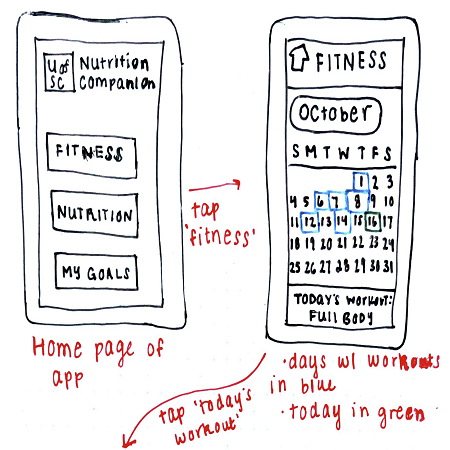 U of
SC
Nutrition
Companion
FITNESS
NUTRITION
MY GOALS
Home page of
app
tap
'fitness'
FITNESS
October
S M T W T F S
1 2 3
4 5 6 7 8 9 10
11 12 13 14 15 16 17
18 19 20 21 22 23 24
25 26 27 28 29 30 31
TODAY'S WORKOUT:
FULL BODY
• days w/ workouts
in blue
• today in green
tap 'today's
workout'